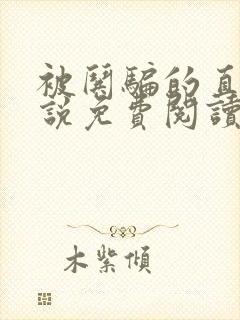 被閱騙的直
說免費閱讀
木紫傾